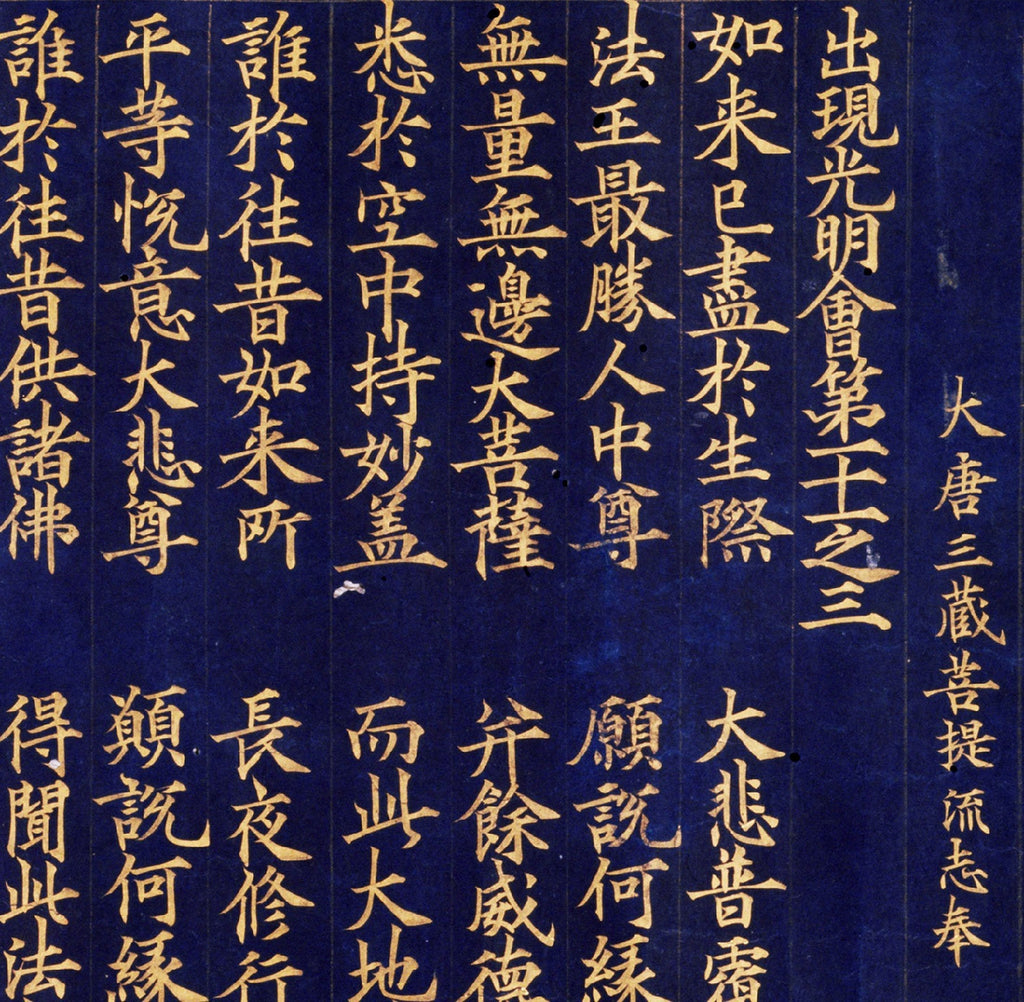 大唐三蔵菩提流志奉
出現光明會第十一之三
如来已盡於生際　大悲普霑
法王最勝人中尊　願説何縁
無量無邊大菩薩　并餘威德
悉於空中持妙盖　而此大地
誰於往昔如来所　長夜修行
平等恱意大悲尊　願説何縁
誰於往昔供諸佛　得聞此法